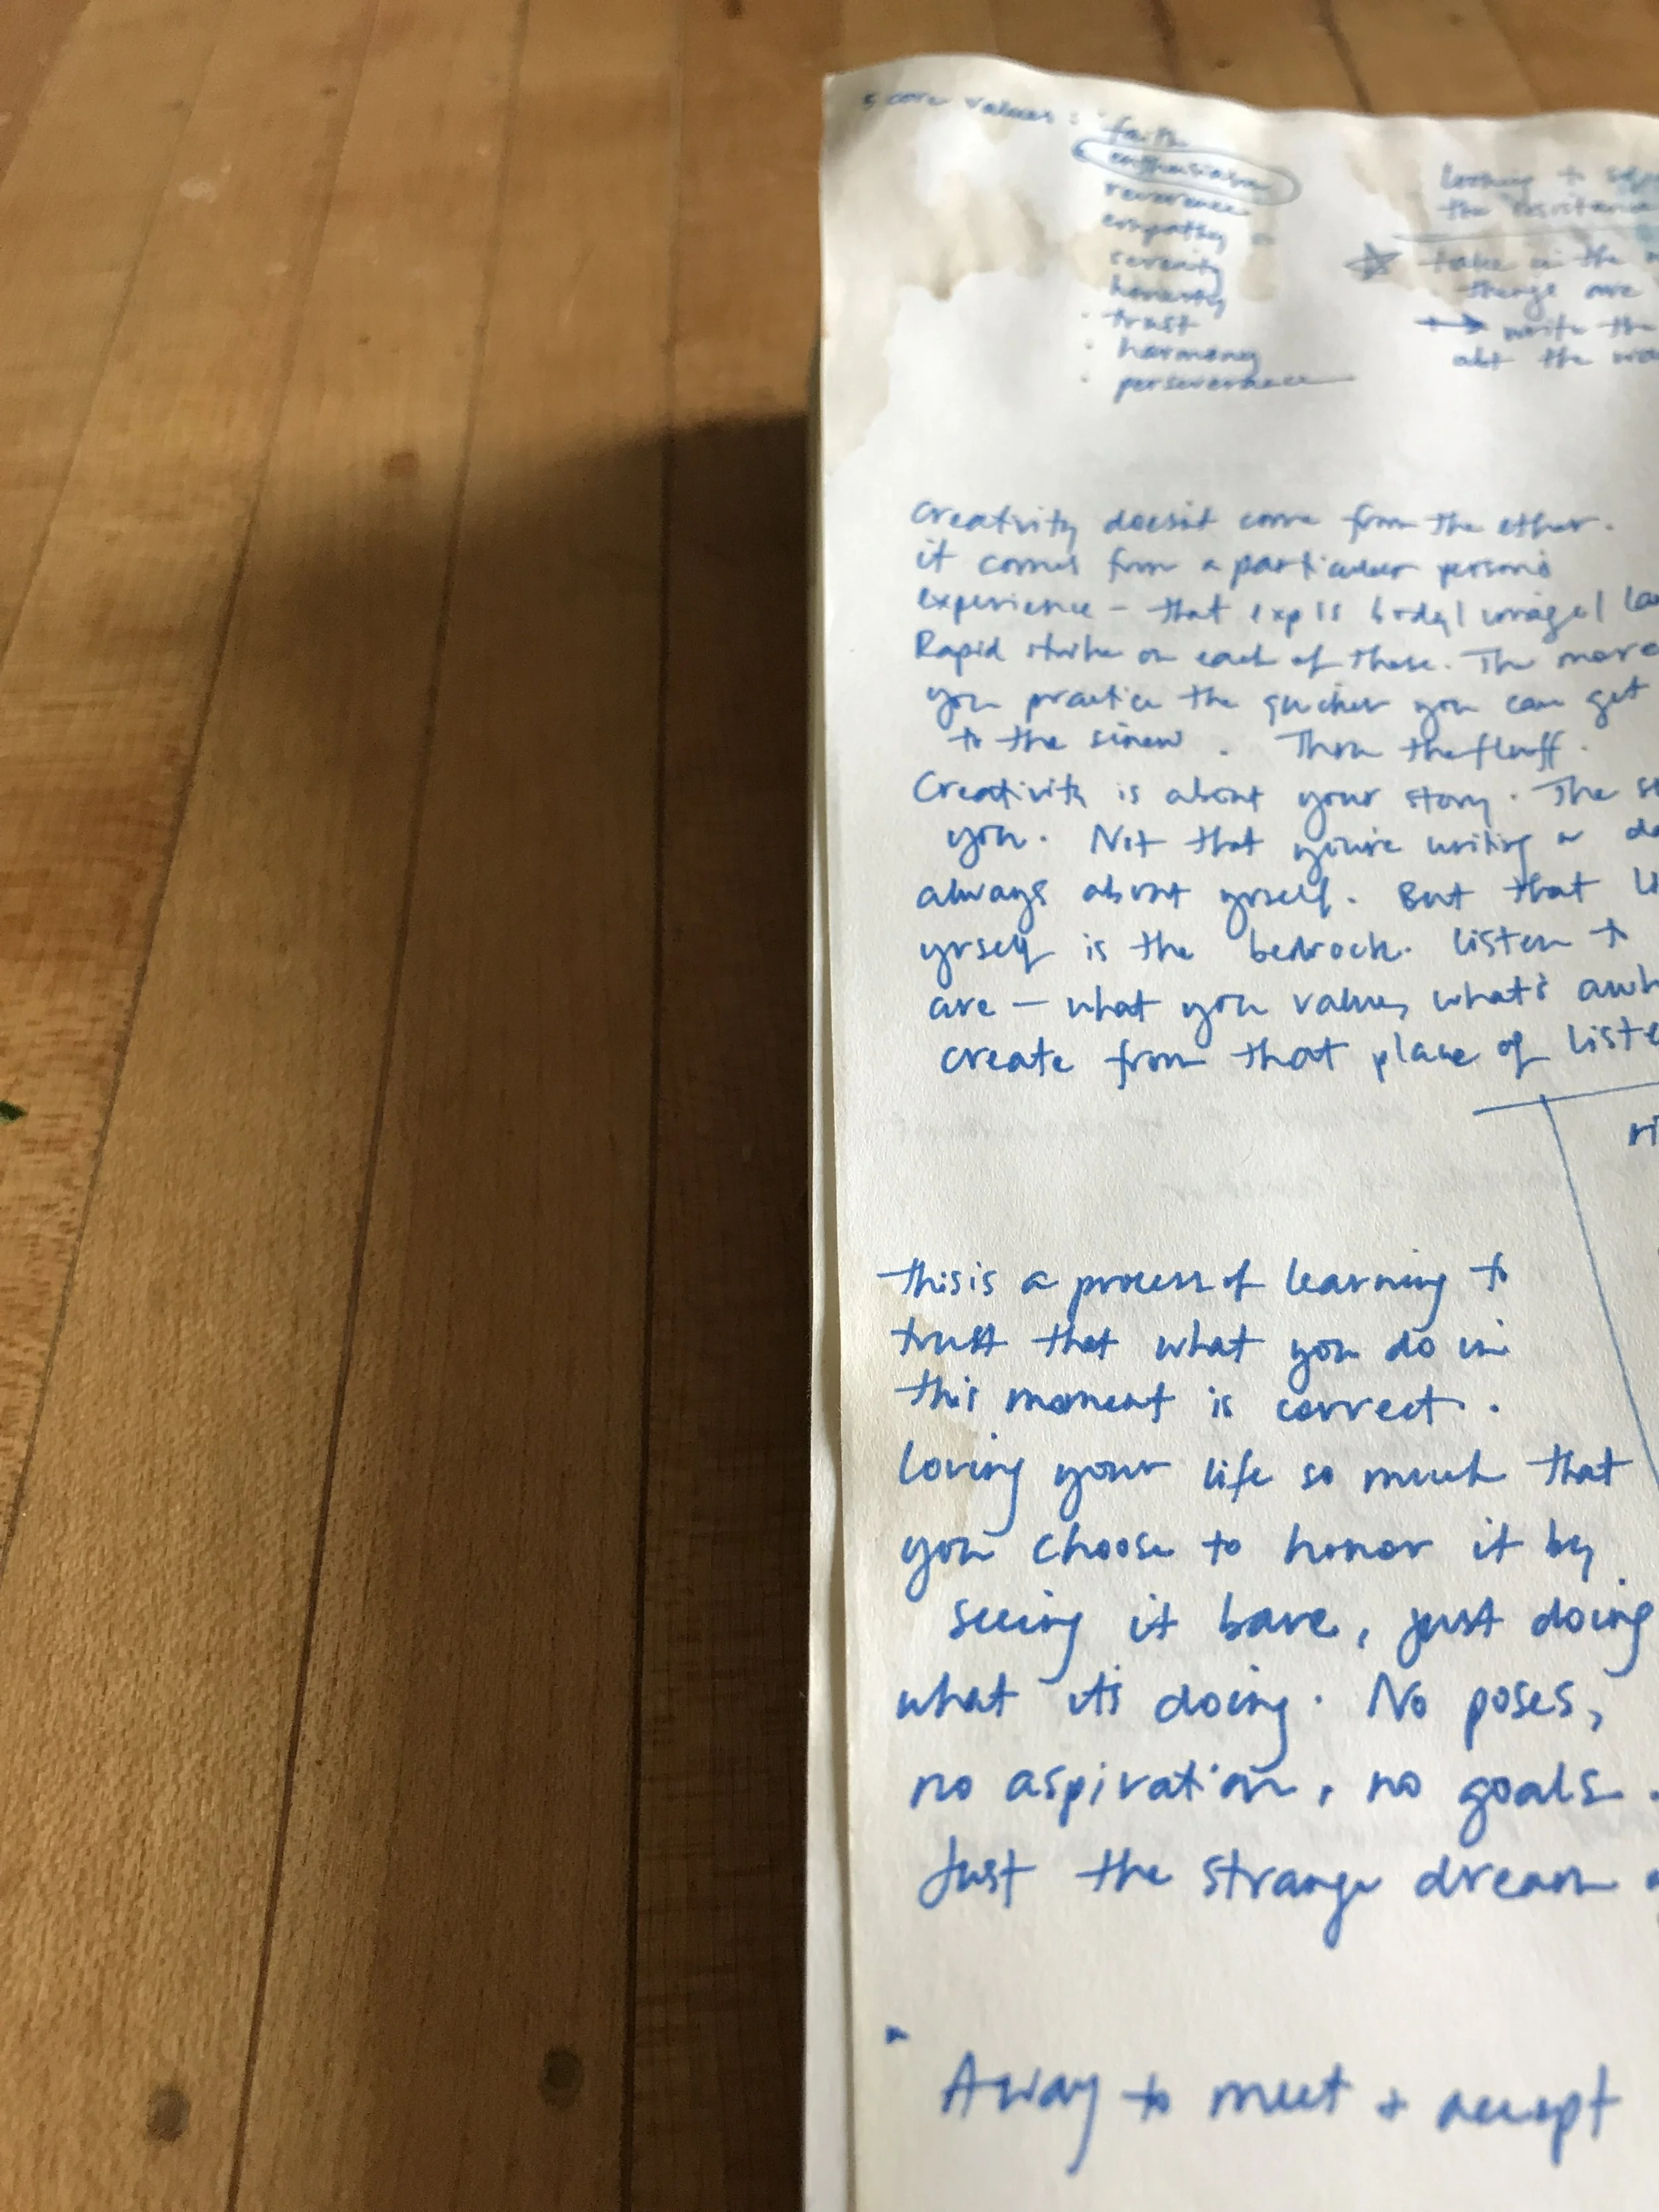 5 core values:
faith
enthusiasm
reverence
empathy
serenity
honesty
· trust
· harmony
· perseverance
looking to
the resistance
take in the
things are
write the
abt the
Creativity doesn't come from the ether.
it comes from a particular person's
experience — that exp is body | image |
Rapid strike on each of these. The more
you practice the quicker you can get
to the sinew. Thru the fluff.
Creativity is about your story. The
you. Not that you're writing
always about yrself. But that
yrself is the bedrock. Listen to
are — what you value, what's
create from that place of
this is a process of learning to
trust that what you do in
this moment is correct.
Loving your life so much that
you choose to honor it by
seeing it bare, just doing
what it's doing. No poses,
no aspiration, no goals.
Just the strange dream
A way to meet + accept